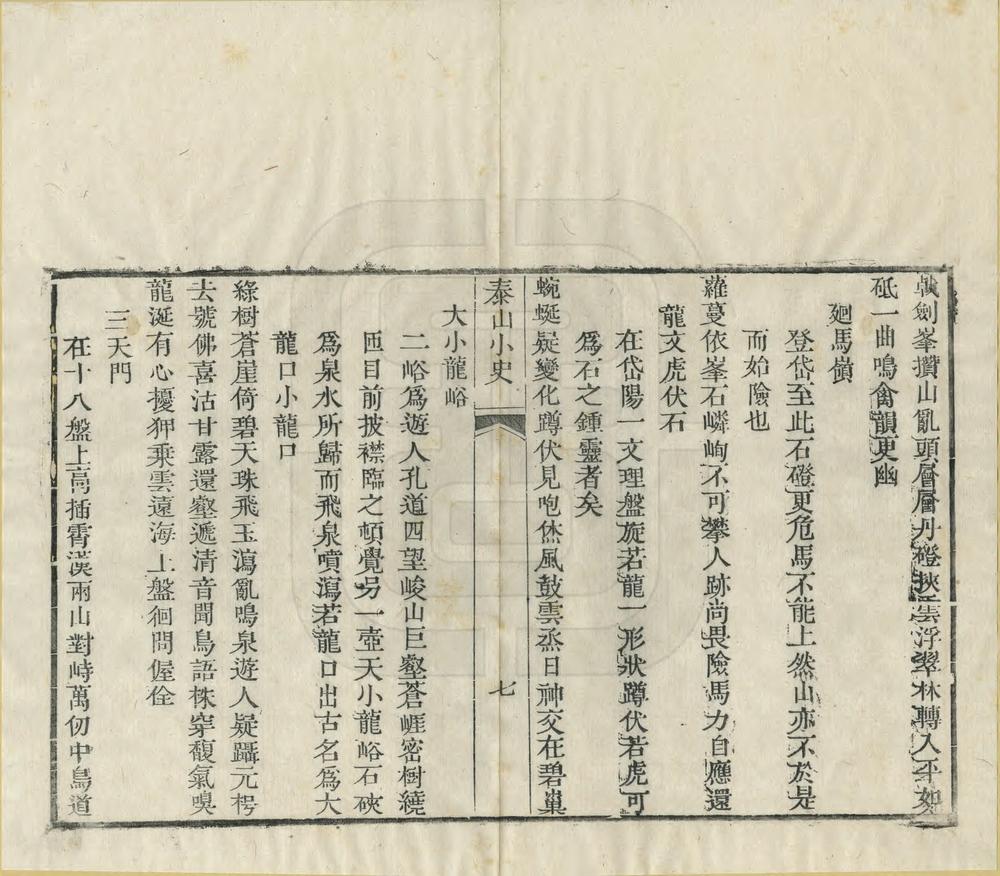 戟劍峯攢山亂頭層層丹磴挾雲浮翠林轉入平如
砥一曲鳴禽韻更幽
廻馬嶺
登岱至此石磴更危馬不能上然山亦不於是
而始險也
蘿蔓依峯石嶙峋不可攀人跡尚畏險馬力自應還
龍文虎伏石
在岱陽一文理盤旋若龍一形狀蹲伏若虎可
爲石之鍾靈者矣
蜿蜒疑變化蹲伏見咆烋風鼓雲烝日神交在碧巢
泰山小史
七
大小龍峪
二峪爲遊人孔道四望峻山巨壑蒼崕密樹繞
匝目前披襟臨之頓覺另一壺天小龍峪石硤
爲泉水所歸而飛泉噴瀉若龍口出古名爲大
龍口小龍口
綠樹蒼崖倚碧天珠飛玉瀉亂鳴泉遊人疑躡元枵
去號佛喜沾甘露還壑遞清音聞鳥語株穿馥氣嗅
龍涎有心擾狎乗雲遠海上盤徊問偓佺
三天門
在十八盤上高插霄漢兩山對峙萬仞中鳥道